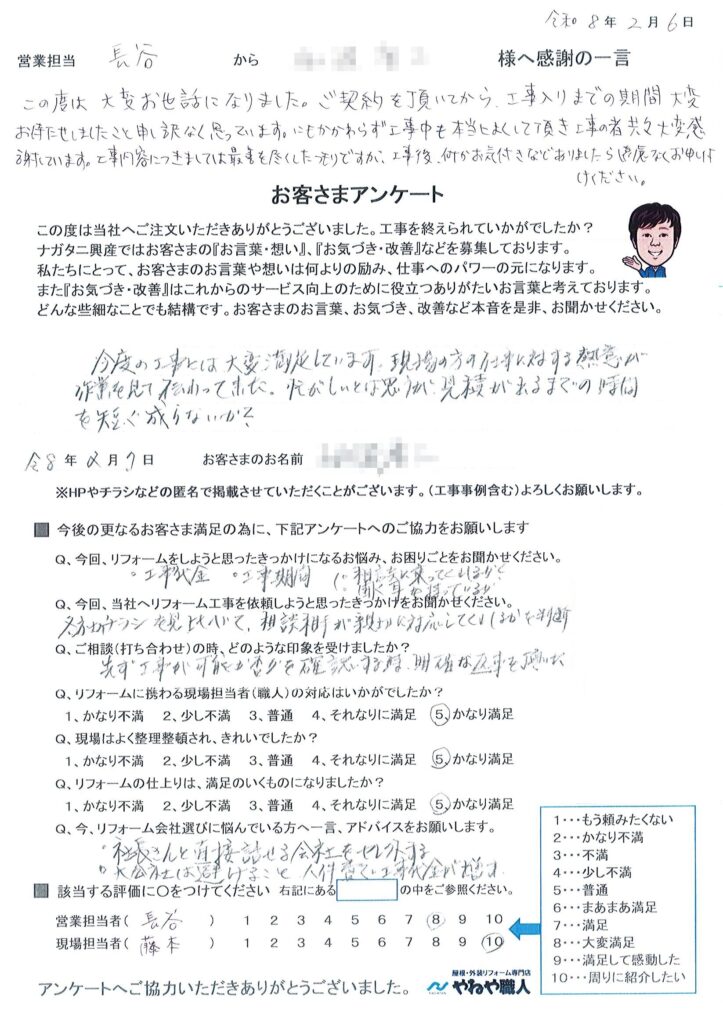 令和 8年 2月 6日
営業担当 長谷 から 様へ感謝の一言
この度は 大変お世話になりました。ご契約を頂いてから、工事入りまでの期間 大変
お待たせしましたこと申し訳なく思っています。にもかかわらず工事中も本当によくして頂き工事の者共々大変感
謝しています。工事内容につきましては最善を尽くしたつもりですが、工事後、何かお気付きなどありましたら遠慮なくお申し付
けください。
お客さまアンケート
この度は当社へご注文いただきありがとうございました。工事を終えられていかがでしたか？
ナガタニ興産ではお客さまの『お言葉・想い』、『お気づき・改善』などを募集しております。
私たちにとって、お客さまのお言葉や想いは何よりの励み、仕事へのパワーの元になります。
また『お気づき・改善』はこれからのサービス向上のために役立つありがたいお言葉と考えております。
どんな些細なことでも結構です。お客さまのお言葉、お気づき、改善など本音を是非、お聞かせください。
今度の工事には大変満足しています。現場の方の仕事に対する熱意が
作業を見て伝わって来た。忙がしいとは思うが、見積が来るまでの時間
を短く成らないか？
令8年2月7日 お客さまのお名前
※HPやチラシなどの匿名で掲載させていただくことがございます。（工事事例含む）よろしくお願いします。
■ 今後の更なるお客さま満足の為に、下記アンケートへのご協力をお願いします
Q、今回、リフォームをしようと思ったきっかけになるお悩み、お困りごとをお聞かせください。
・工事代金 ・工事期間 （・相談に乗ってくれるか？
・聞く耳を持っているか
Q、今回、当社へリフォーム工事を依頼しようと思ったきっかけをお聞かせください。
各社のチラシを見比べて、相談 が親身に対応してくれるかを判断
Q、ご相談（打ち合わせ）の時、どのような印象を受けましたか？
先ず工事が可能か否かを確認する際、明確な返事を頂いた
Q、リフォームに携わる現場担当者（職人）の対応はいかがでしたか？
1、かなり不満 2、少し不満 3、普通 4、それなりに満足 5、かなり満足
Q、現場はよく整理整頓され、きれいでしたか？
1、かなり不満 2、少し不満 3、普通 4、それなりに満足 5、かなり満足
Q、リフォームの仕上りは、満足のいくものになりましたか？
1、かなり不満 2、少し不満 3、普通 4、それなりに満足 5、かなり満足
Q、今、リフォーム会社選びに悩んでいる方へ一言、アドバイスをお願いします。
・社長さんと直接話せる会社を
・大会社は避けること 工事代金が増す
■ 該当する評価に○をつけてください 右記にある の中をご参照ください。
営業担当者（ 長谷 ） 1 2 3 4 5 6 7 8 9 10
現場担当者（ 藤本 ） 1 2 3 4 5 6 7 8 9 10
1・・・もう頼みたくない
2・・・かなり不満
3・・・不満
4・・・少し不満
5・・・普通
6・・・まあまあ満足
7・・・満足
8・・・大変満足
9・・・満足して感動した
10・・・周りに紹介したい
アンケートへご協力いただきありがとうございました。
屋根・外装リフォーム専門店
やねや職人